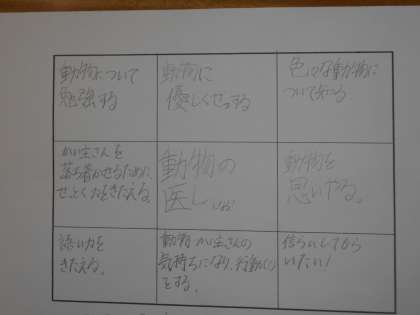 動物について
勉強する
動物に
優しくせっする
色々な動物に
ついて知る
かい主さんを
落ち着かせるために
せっとく力をきたえる。
動物の
医し
動物を
思いやる。
きたえる。
動物、かい主さんの
気持ちになり、行動
をする。
信らいしてもら
いたい!